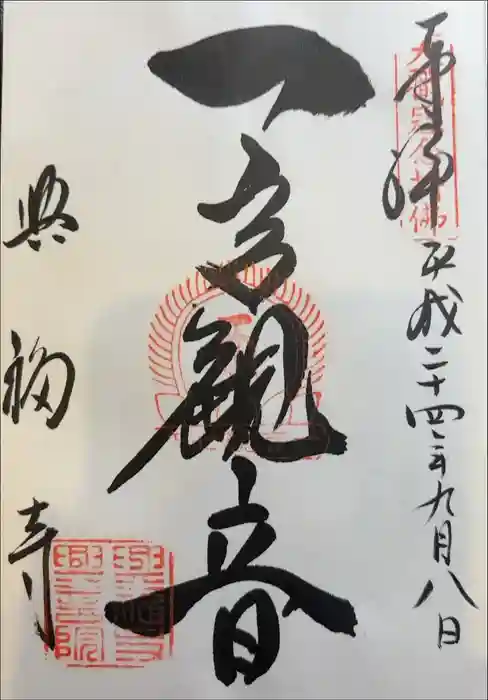 奉拝
平成二十四年九月八日
一言観音
興福寺